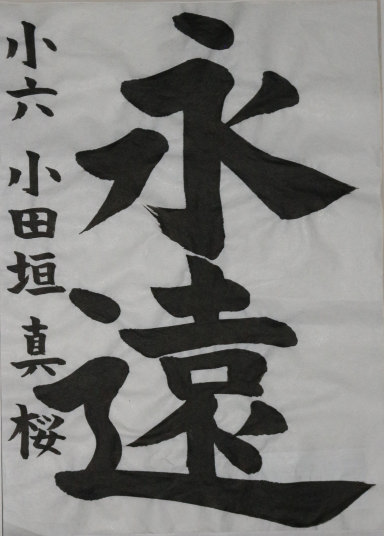 永遠
小六 小田垣 真桜